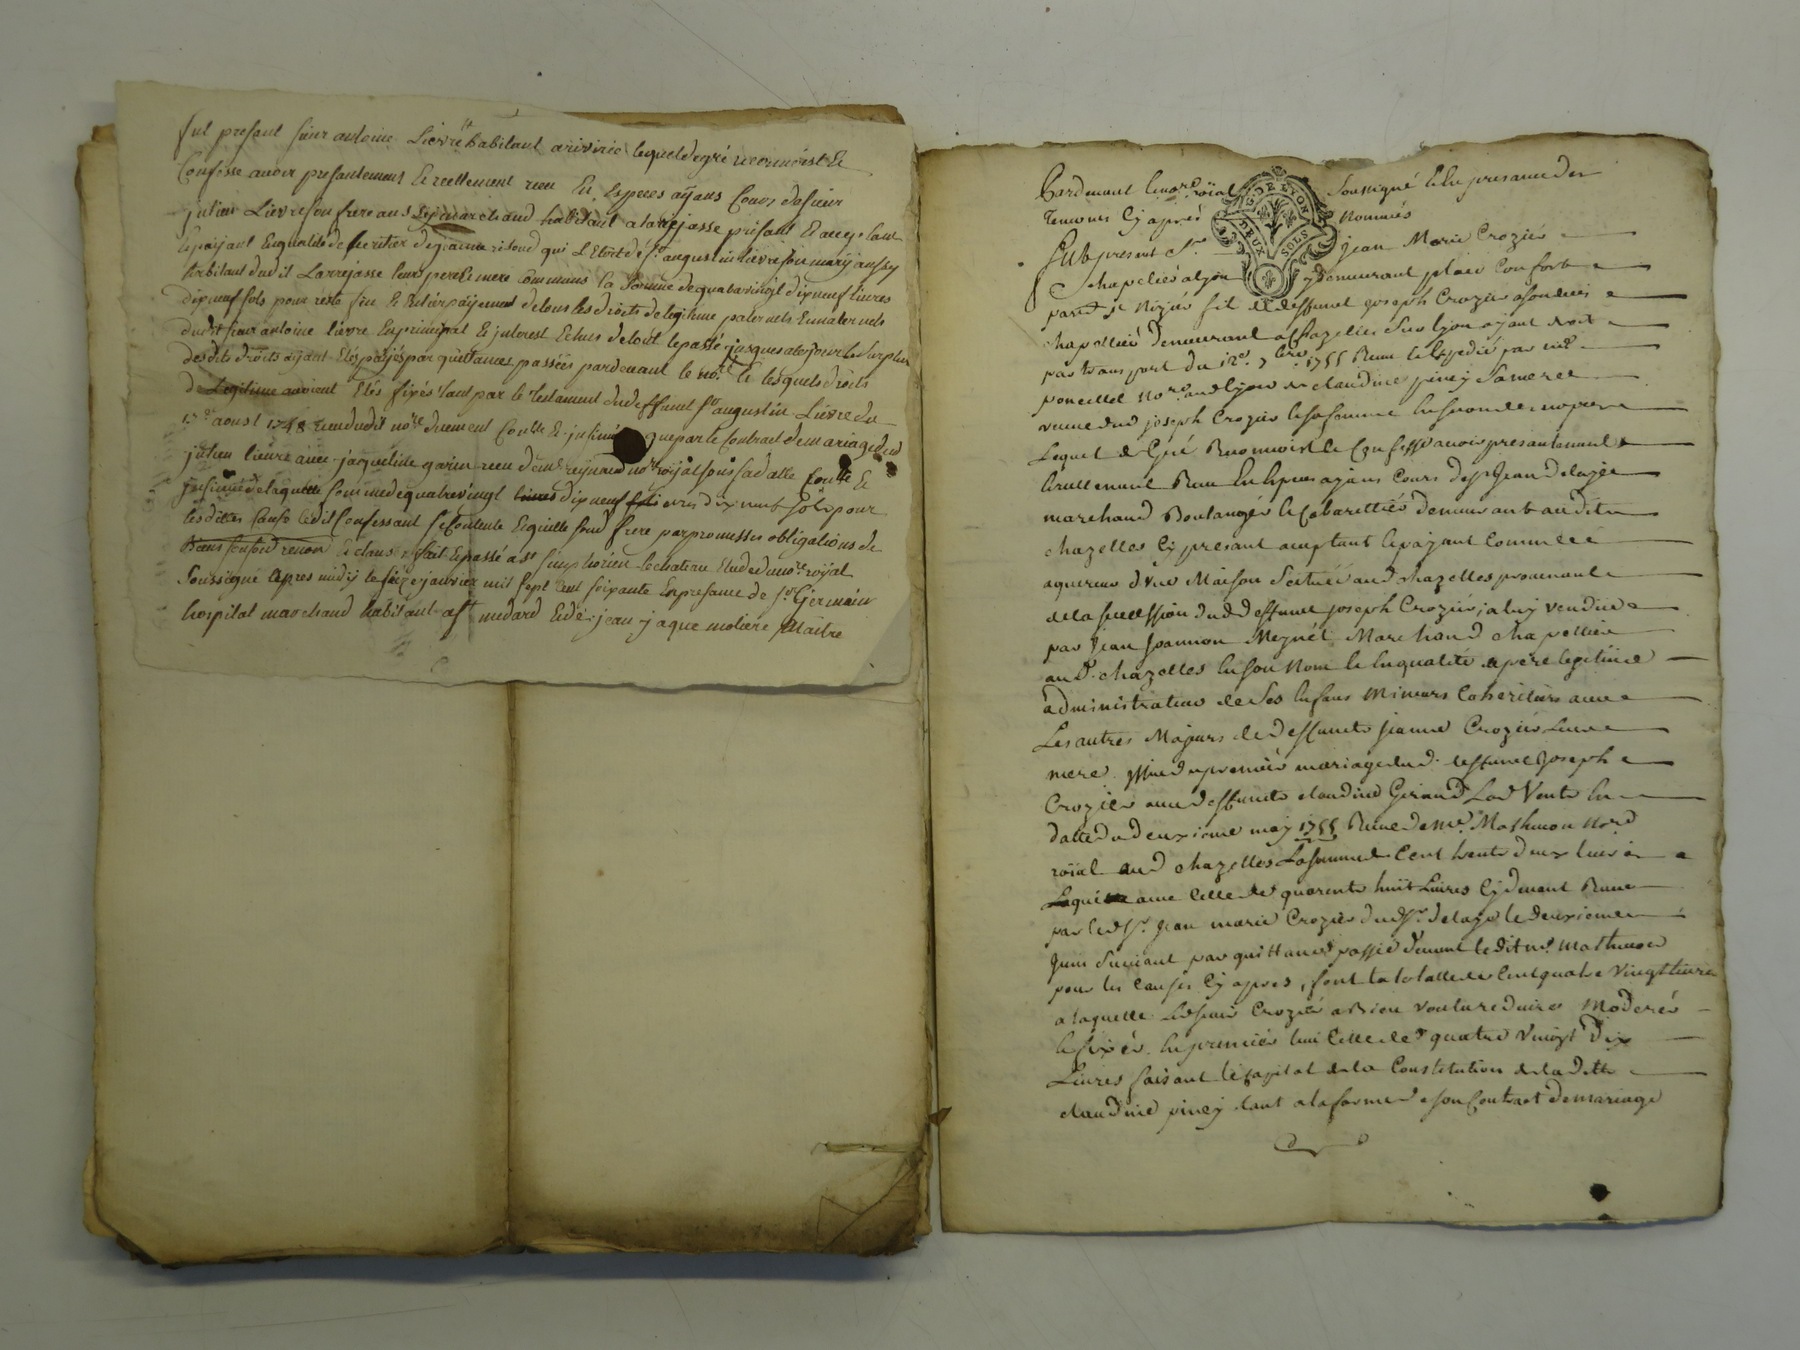 fut presant sieur antoine Lievre habitant a riviric lequel de gré reconnoist Et
Confesse avoir presantement Et reellement receu En Especes ayans Cours de sieur
julien Lievre son frere aussy marchand habitant a larrejasse présant Et accep.tant
Et payant En qualité de heritier de jeanne qui L'Etoit de Sr. augustin lievre son mary aussy
habitant dudit Larrejasse leurs pere Et mere communs la Somme de quatre vingt dix neuf livres
dix neuf sols pour reste fin Et Entier payement de tous les droits de legitime paternels Et maternels
dudit sieur antoine lievre En principal Et interest Echus de tout le passé jusques a ce jour le Surplus
des dits droits ayant Etés payés par quittances passées pardevant le no.re Et lesquels droits
de Legitime avoient Etés fixés tant par le Testament dudeffunt Sr augustin Lievre du
17e aoust 1748 rendu dudit no.re duement Con.llé Et insinué que par le Contract de mariage dud
julien lievre avec jacqueline garin receu de me reynaud no.re royal sous sa datte Con.llé Et
insinué de laquelle somme de quatre vingt livres dix neuf sols pour
les dittes Causes ledit Confessant se Contente Et quitte son d frere par promesses obligations de
biens renon Et claus. fait Et passé a St simphorien le chateau Etude du no.re royal
Soussigné apres midy le seize janvier mil sept cent soixante En presance de sr Germain
hospital marchand habitant a St medard Et de jean jaque moliere Maitre
Pardevant le no.re roïal Soussigné Et En presance des
Temoins cy après Nommés
G. DE LYON
DEUX SOLS
Fut present Sr. jean Marie Crozier
chapelier a lyon y demeurant place Confort
par.sse St Nizier fils de deffunt joseph Crozier
chapellier demeurant a Chazelles Sur lyon ayant droit
par transport du 12e 7bre 1755 Receu Et Expedié par me
no.re aud lyon de claudine piney Sa mere
veuve dud joseph Crozier Et sa femme En secondes nopces
Lequel de Gré Reconnoist Et Confesse avoir presantement
Et reellement Receu En Especes ayans Cours de Sr Jean Delaye
marchand Boulanger Et Cabarettier demeurant audit
chazelles Cy presant acceptant Et payant Comme
aquereur d'une Maison Scituée aud chazelles provenant
de la succession dud deffunt joseph Crozier, a luy vendue
par Jean Joannon Meynét Marchand chapellier
aud. chazelles En son Nom Et En qualité de pere legitime
administrateur de Ses Enfans Mineurs Coheritiers avec
Les autres Majeurs de deffunte jeanne Crozier Leur
mere issue du premier mariage dud. deffunt Joseph
Crozier avec deffunte claudine Girand Lad Vente En
datte du deuxieme may 1755 Receue de me. Mathevon No.re
roïal aud chazelles La somme de Cent trente deux livres
Laquelle avec Celle de quarente huit Livres Cy devant Receue
par led Sr. jean marie Crozier dud Sr. delaye le deuxieme
juin Suivant par quittance passée devant ledit me. Mathevon
pour les causes Cy apres, font la totalle de Cent quatre Vingt livres
a laquelle Led sieur Crozier a Bien voulu reduire Moderér
Et fixér En premier lieu Celle de quatre Vingt Dix
Livres faisant le capital de la Constitution de ladite
claudine piney dans a la forme de son Contract de mariage